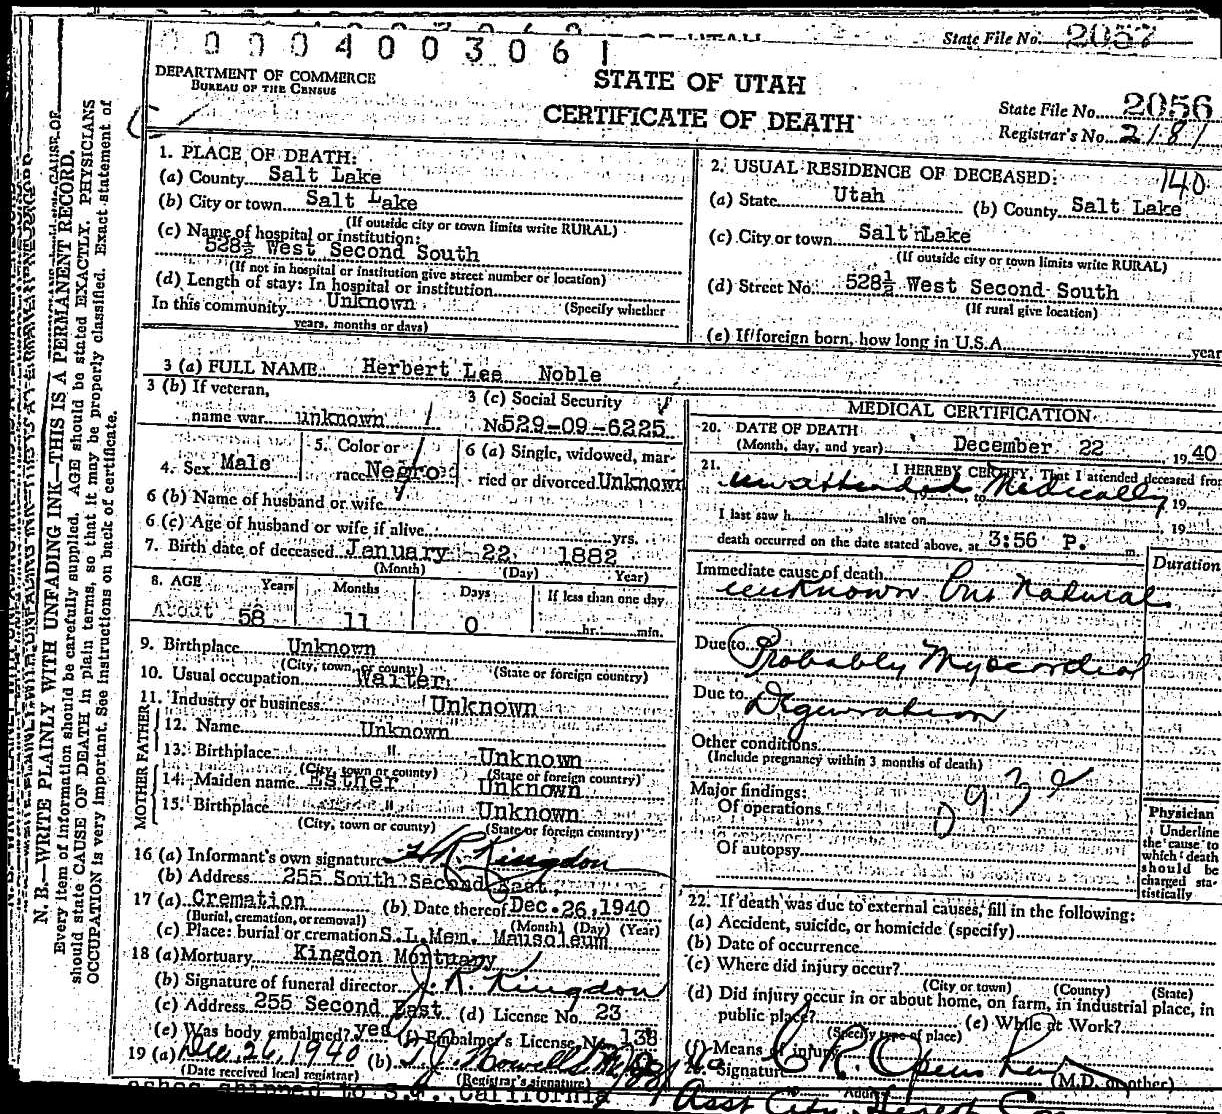 State File No. 2057
0 0 0 0 4 0 0 3 0 6 1
DEPARTMENT OF COMMERCE
BUREAU OF THE CENSUS
STATE OF UTAH
CERTIFICATE OF DEATH
State File No. 2056
Registrar's No. 2181
N. B.—WRITE PLAINLY WITH UNFADING INK—THIS IS A PERMANENT RECORD.
Every item of information should be carefully supplied. AGE should be stated EXACTLY. PHYSICIANS
should state CAUSE OF DEATH in plain terms, so that it may be properly classified. Exact statement of
OCCUPATION is very important. See instructions on back of certificate.
1. PLACE OF DEATH:
(a) County Salt Lake
(b) City or town Salt Lake
(If outside city or town limits write RURAL)
(c) Name of hospital or institution:
528½ West Second South
(If not in hospital or institution give street number or location)
(d) Length of stay: In hospital or institution
In this community Unknown (Specify whether
years, months or days)
2. USUAL RESIDENCE OF DECEASED: 140
(a) State Utah (b) County Salt Lake
(c) City or town Salt Lake
(If outside city or town limits write RURAL)
(d) Street No. 528½ West Second South
(If rural give location)
(e) If foreign born, how long in U.S.A. year
3 (a) FULL NAME Herbert Lee Noble
3 (b) If veteran,
name war unknown
3 (c) Social Security
No 529-09-6225
4. Sex Male
5. Color or
race Negro
6 (a) Single, widowed, mar-
ried or divorced Unknown
6 (b) Name of husband or wife
6 (c) Age of husband or wife if alive yrs.
7. Birth date of deceased January 22 1882
(Month) (Day) Year)
8. AGE Years Months Days If less than one day
About 58 11 0 hr. min.
9. Birthplace Unknown
(City, town, or county) (State or foreign country)
10. Usual occupation Waiter
11. Industry or business Unknown
FATHER
12. Name Unknown
13. Birthplace " Unknown
(City, town or county) (State or foreign country)
MOTHER
14. Maiden name Esther Unknown
15. Birthplace " Unknown
(City, town or county) (State or foreign country)
16 (a) Informant's own signature R. Kingdon
(b) Address 255 South Second East,
17 (a) Cremation (b) Date thereof Dec. 26, 1940
(Burial, cremation, or removal) (Month) (Day) (Year)
(c) Place: burial or cremation S.L. Mem. Mausoleum
18 (a) Mortuary Kingdon Mortuary
(b) Signature of funeral director J. R. Kingdon
(c) Address 255 Second East (d) License No. 23
(e) Was body embalmed? yes (f) Embalmer's License No. 138
19 (a) Dec. 26, 1940 (b)
(Date received local registrar) (Registrar's signature)
ashes shipped to California
MEDICAL CERTIFICATION
20. DATE OF DEATH
(Month, day, and year) December 22 1940
21. I HEREBY CERTIFY, That I attended deceased from
unattended Medically to 19
I last saw h alive on 19
death occurred on the date stated above, at 3:56 P. m.
Duration
Immediate cause of death
unknown but Natural
Due to Probably Myocordial
Due to Digeneration
Other conditions
(Include pregnancy within 3 months of death)
Major findings:
Of operations
Of autopsy
Physician
Underline
the cause to
which death
should be
charged sta-
tistically
22. If death was due to external causes, fill in the following:
(a) Accident, suicide, or homicide (specify)
(b) Date of occurrence
(c) Where did injury occur?
(City or town) (County) (State)
(d) Did injury occur in or about home, on farm, in industrial place, in
public place? (e) While at Work?
(Specify type of place)
(f) Means of injury
Signature (M.D. or other)
Asst City